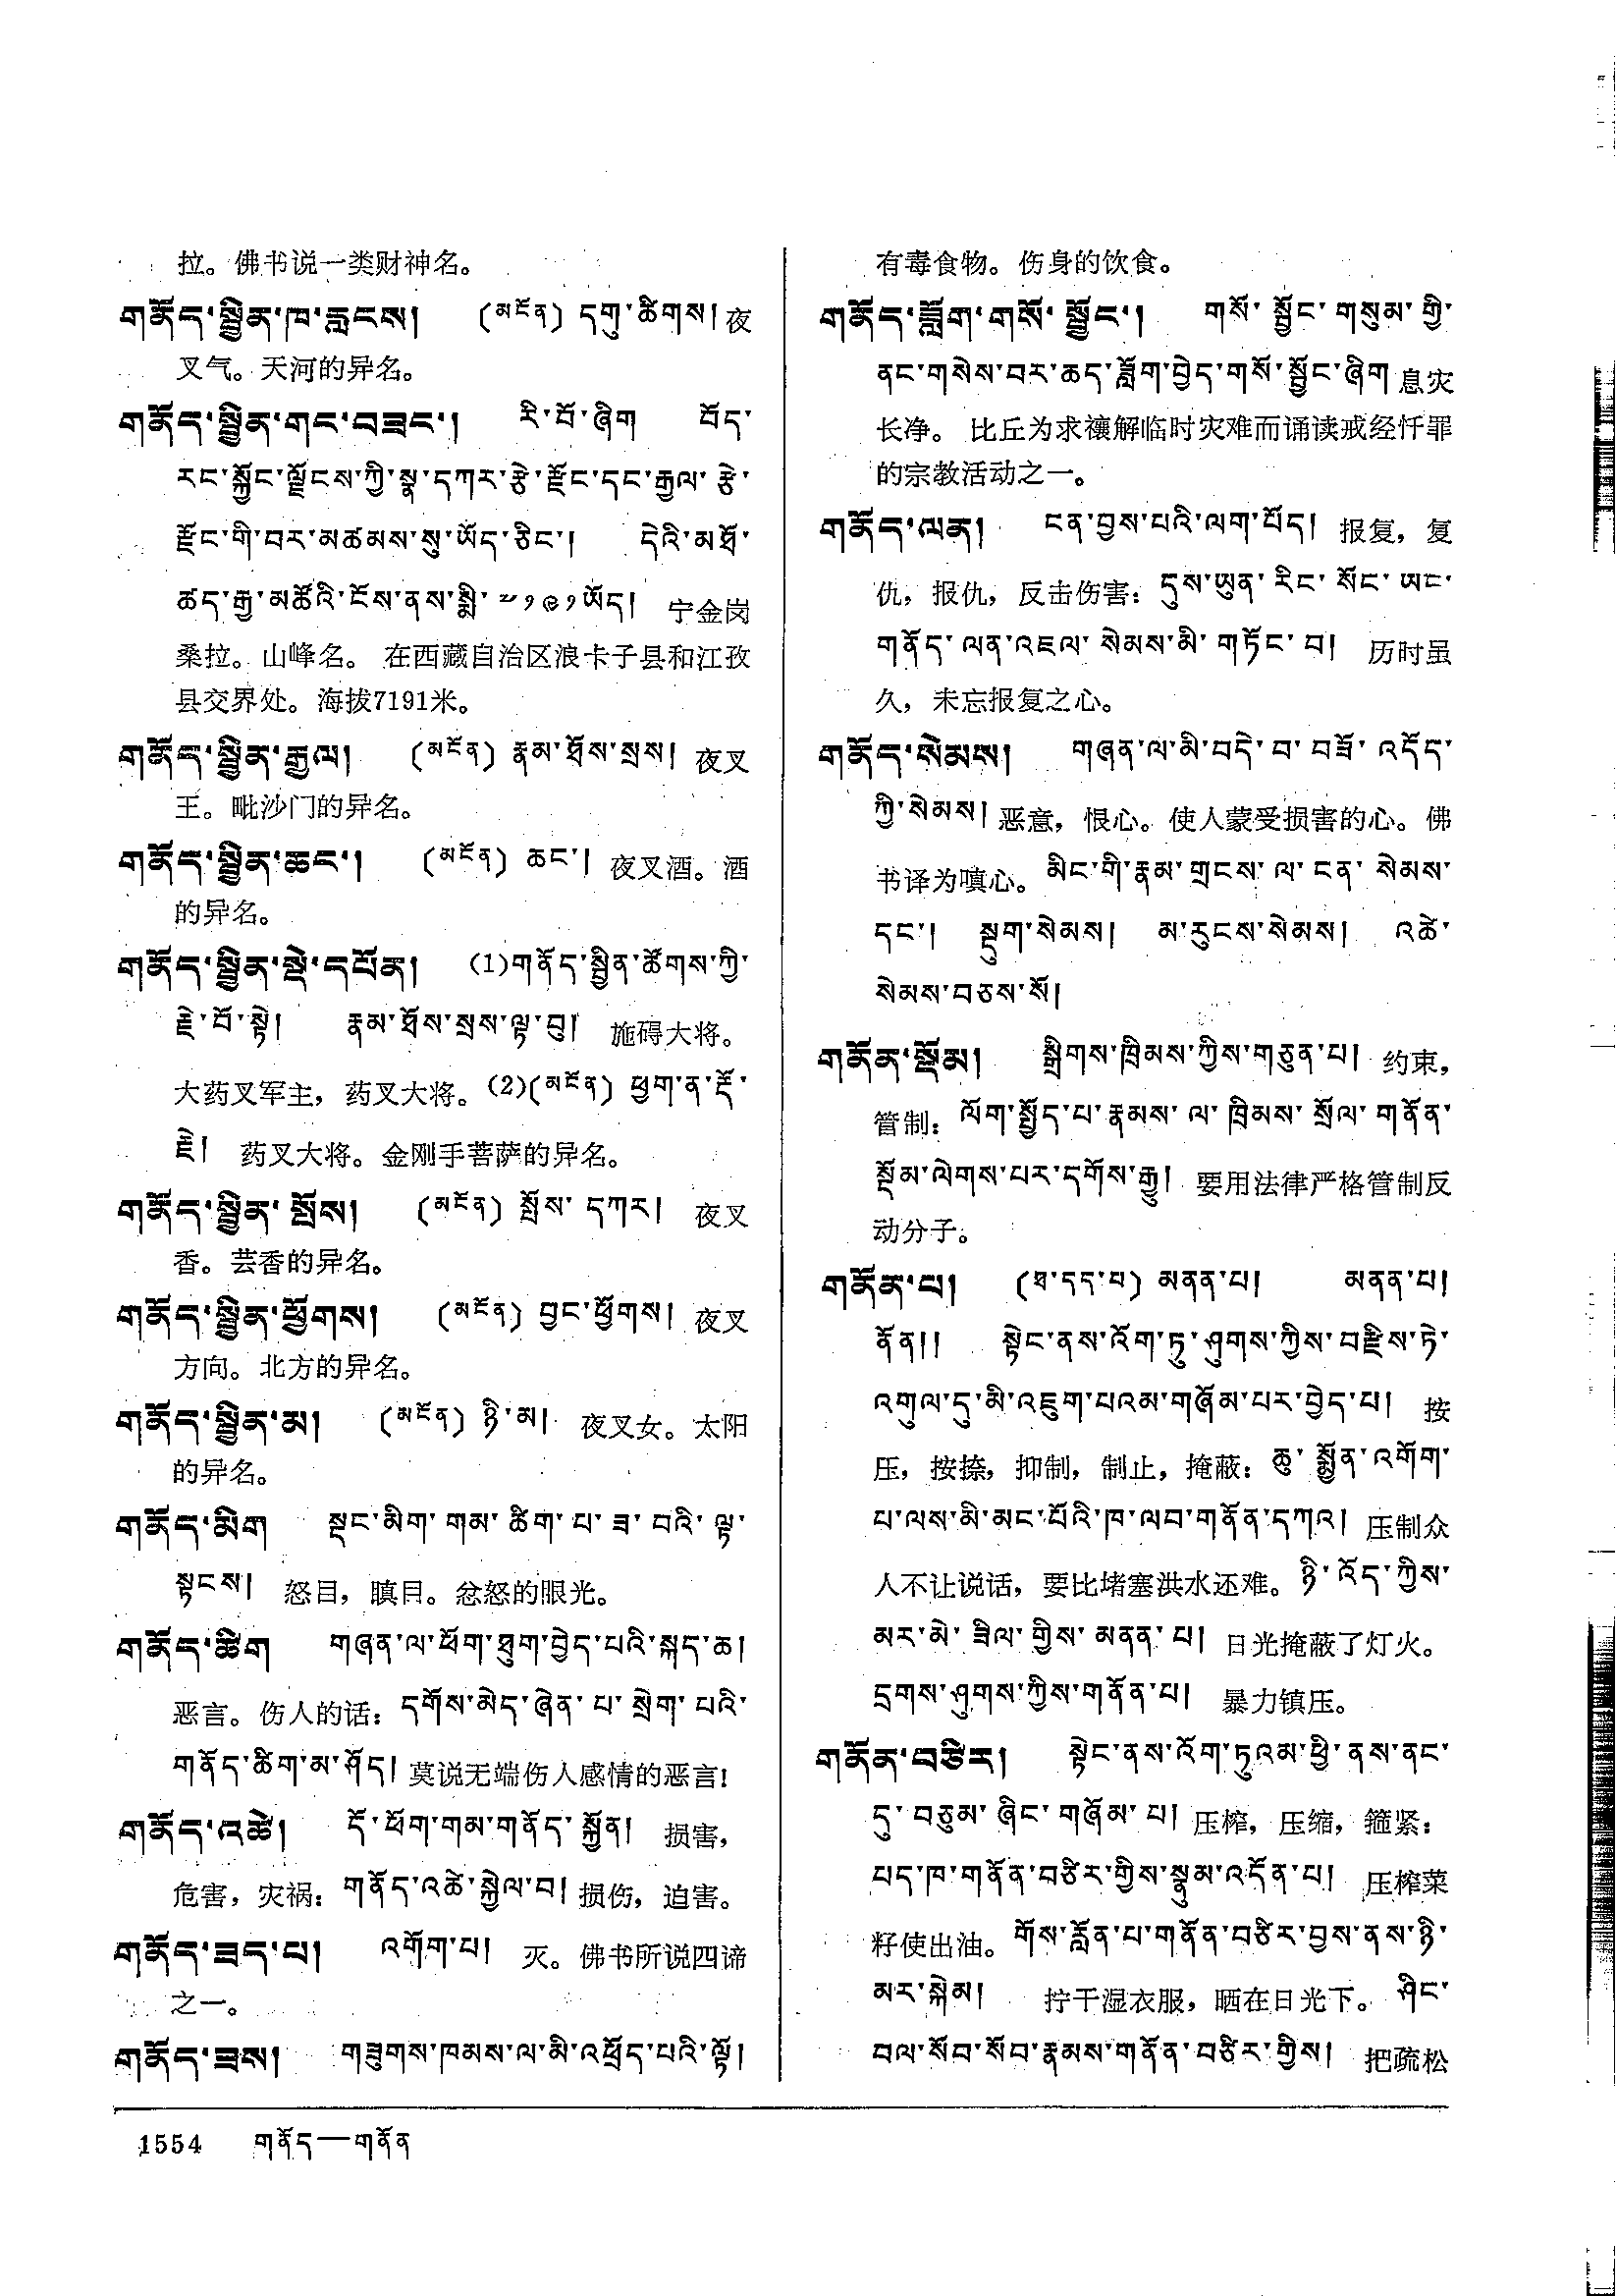 拉。佛书说一类财神名。
གནོད་སྦྱིན་ཁ་རླངས། (མངོན) དགུ་ཚིགས། 夜
叉气。天河的异名。
གནོད་སྦྱིན་གང་བཟང་། རི་བོ་ཞིག བོད་
རང་སྐྱོང་ལྗོངས་ཀྱི་སྣ་དཀར་རྩེ་རྫོང་དང་རྒྱལ་རྩེ་
རྫོང་གི་བར་མཚམས་སུ་ཡོད་ཅིང་། དེའི་མཐོ་
ཚད་རྒྱ་མཚོའི་ངོས་ནས་སྨི་༧༡༩༡ཡོད། 宁金岗
桑拉。山峰名。 在西藏自治区浪卡子县和江孜
县交界处。海拔7191米。
གནོད་སྦྱིན་རྒྱལ། (མངོན) རྣམ་ཐོས་སྲས། 夜叉
王。毗沙门的异名。
གནོད་སྦྱིན་ཆང་། (མངོན) ཆང་། 夜叉酒。酒
的异名。
གནོད་སྦྱིན་སྡེ་དཔོན། (1)གནོད་སྦྱིན་ཚོགས་ཀྱི་
རྗེ་བོ་སྟེ། རྣམ་ཐོས་སྲས་ལྟ་བུ། 施碍大将。
大药叉军主，药叉大将。(2)(མངོན) ཕྱག་ན་རྡོ་
རྗེ། 药叉大将。金刚手菩萨的异名。
གནོད་སྦྱིན་སྤོས། (མངོན) སྤོས་དཀར། 夜叉
香。芸香的异名。
གནོད་སྦྱིན་ཕྱོགས། (མངོན) བྱང་ཕྱོགས། 夜叉
方向。北方的异名。
གནོད་སྦྱིན་མ། (མངོན) ཉི་མ། 夜叉女。太阳
的异名。
གནོད་མིག སྡང་མིག་གམ་ཚིག་པ་ཟ་བའི་ལྟ་
སྟངས། 怒目，瞋目。忿怒的眼光。
གནོད་ཚིག གཞན་ལ་ཕོག་ཐུག་བྱེད་པའི་སྐད་ཆ།
恶言。伤人的话：དགོས་མེད་ཞེན་པ་སྲེག་པའི་
གནོད་ཚིག་མ་ཤོད། 莫说无端伤人感情的恶言！
གནོད་འཚེ། དོ་ཕོག་གམ་གནོད་སྐྱོན། 损害，
危害，灾祸：གནོད་འཚེ་སྐྱེལ་བ། 损伤，迫害。
གནོད་ཟད་པ། འགོག་པ། 灭。佛书所说四谛
之一。
གནོད་ཟས། གཟུགས་ཁམས་ལ་མི་འཕྲོད་པའི་ལྟོ།
有毒食物。伤身的饮食。
གནོད་ཟློག་གསོ་སྦྱོང་། གསོ་སྦྱོང་གསུམ་གྱི་
ནང་གསེས་བར་ཆད་ཟློག་བྱེད་གསོ་སྦྱོང་ཞིག 息灾
长净。 比丘为求禳解临时灾难而诵读戒经忏罪
的宗教活动之一。
གནོད་ལན། ངན་བྱས་པའི་ལག་པོད། 报复，复
仇，报仇，反击伤害：དུས་ཡུན་རིང་སོང་ཡང་
གནོད་ལན་འཇལ་སེམས་མི་གཏོང་བ། 历时虽
久，未忘报复之心。
གནོད་སེམས། གཞན་ལ་མི་བདེ་བ་བཟོ་འདོད་
ཀྱི་སེམས། 恶意，恨心。使人蒙受损害的心。佛
书译为嗔心。མིང་གི་རྣམ་གྲངས་ལ་ངན་སེམས་
དང་། སྡུག་སེམས། མ་རུངས་སེམས། འཚེ་
སེམས་བཅས་སོ།
གནོན་སྡོམ། སྒྲིགས་ཁྲིམས་ཀྱིས་གཅུན་པ། 约束，
管制：ལོག་སྤྱོད་པ་རྣམས་ལ་ཁྲིམས་སྲོལ་གནོན་
སྡོམ་ལེགས་པར་དགོས་རྒྱུ། 要用法律严格管制反
动分子。
གནོན་པ། (ཐ་དད་པ) མནན་པ། མནན་པ།
ནོན།། སྟེང་ནས་འོག་ཏུ་ཤུགས་ཀྱིས་བརྫིས་ཏེ་
འགུལ་དུ་མི་འཇུག་པའམ་གཞོམ་པར་བྱེད་པ། 按
压，按捺，抑制，制止，掩蔽：ཆུ་སྨྱོན་འགོག་
པ་ལས་མི་མང་པོའི་ཁ་ལབ་གནོན་དཀའ། 压制众
人不让说话，要比堵塞洪水还难。ཉི་འོད་ཀྱིས་
མར་མེ་ཟིལ་གྱིས་མནན་པ། 日光掩蔽了灯火。
དྲགས་ཤུགས་ཀྱིས་གནོན་པ། 暴力镇压。
གནོན་བཙིར། སྟེང་ནས་འོག་ཏུའམ་ཕྱི་ནས་ནང་
དུ་བཅུམ་ཞིང་གཞོམ་པ། 压榨，压缩，箍紧：
པད་ཁ་གནོན་བཙིར་གྱིས་སྣུམ་འདོན་པ། 压榨菜
籽使出油。གོས་རློན་པ་གནོན་བཙིར་བྱས་ནས་ཉི་
མར་སྐེམ། 拧干湿衣服，晒在日光下。ཤིང་
བལ་སོབ་སོབ་རྣམས་གནོན་བཙིར་གྱིས། 把疏松
1554 གནོད—གནོན